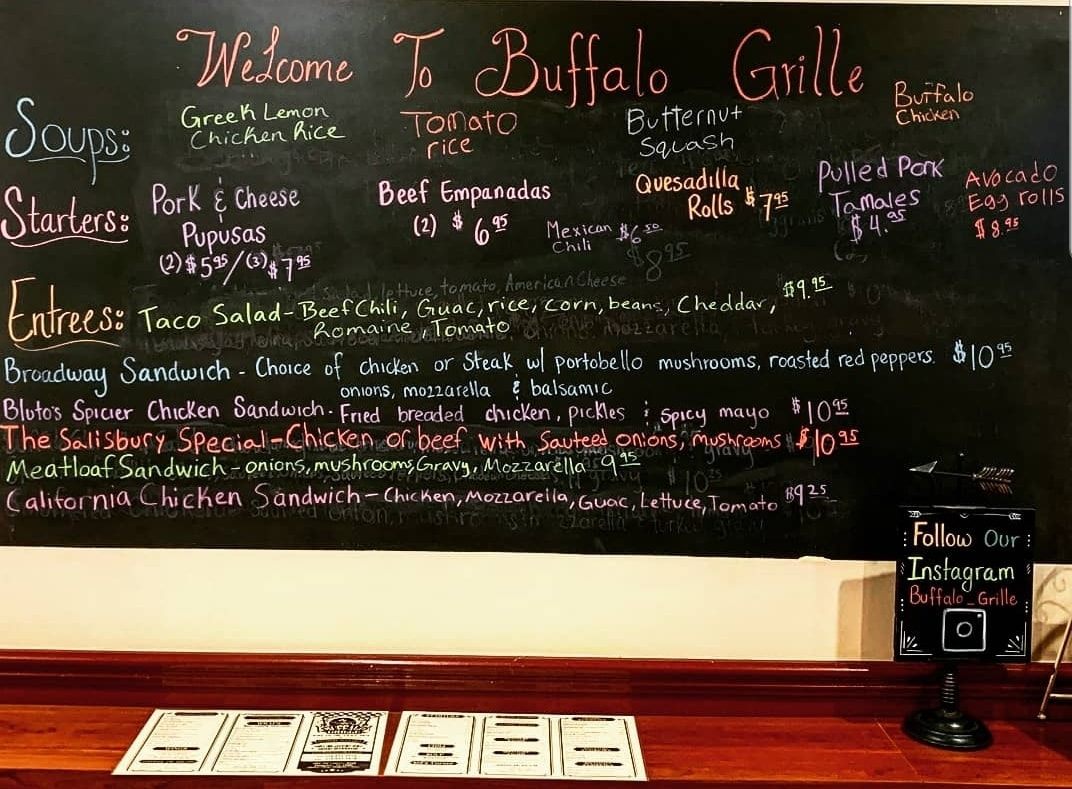 Welcome To Buffalo Grille
Soups:
Greek Lemon
Chicken Rice
Tomato
rice
Butternut
Squash
Buffalo
Chicken
Starters:
Pork & Cheese
Pupusas
(2) $5.95 / (3) $7.95
Beef Empanadas
(2) $6.95
Mexican
Chili $6.50
Quesadilla
Rolls $7.95
Pulled Pork
Tamales
$4.95
Avocado
Egg rolls
$8.95
$8.95
lettuce, tomato, American Cheese
Entrees:
Taco Salad - Beef Chili, Guac, rice, corn, beans, Cheddar, $9.95
Romaine, Tomato
Broadway Sandwich - Choice of chicken or Steak w/ portobello mushrooms, roasted red peppers. $10.95
onions, mozzarella & balsamic
Bluto's Spicier Chicken Sandwich - Fried breaded chicken, pickles & spicy mayo $10.95
The Salisbury Special - Chicken or beef with Sauteed onions, mushrooms $10.95
Meatloaf Sandwich - onions, mushrooms, Gravy, Mozzarella 9.95
California Chicken Sandwich - Chicken, Mozzarella, Guac, Lettuce, Tomato $9.25
Follow Our
Instagram
Buffalo_Grille